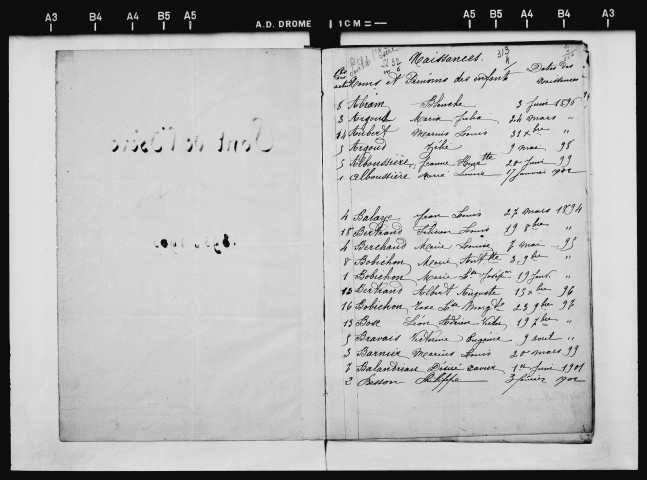 A3 B4 A4 B5 A5 A.D. DROME 1 CM A5 B5 A4 B4 A3
Pont de l'Isère
Naissances.
Noms et Prénoms des enfants Dates des naissances
8 Abram Blanche 3 Juin 1894
3 Argoud Maria Julia 24 mars "
14 Aubert Marius Louis 31 xbre "
5 Argoud Zélie 9 mai 98
5 Alboussière, Jeanne Henrtte 20 Juin 99
1 Alboussière Marie Louise 17 Janvier 902
4 Balaye Jean Louis 27 mars 1894
18 Bertrand Louis 19 8bre "
4 Berchaud Marie Louise 7 mai 95
8 Bobichon Marie Anttte 3 9bre "
1 Bobichon Marie 19 Janv. "
13 Bertrand Albert Auguste 15 xbre 96
16 Bobichon Rose Margte 23 9bre 97
13 Bose Léon Adrien Victor 19 xbre "
5 Bravais Victorine Eugénie 9 avril "
3 Barnier Marius Louis 20 mars 99
7 Balandrieau Désiré Xavier 1er Juin 1901
2 Besson Philippe 3 février 902